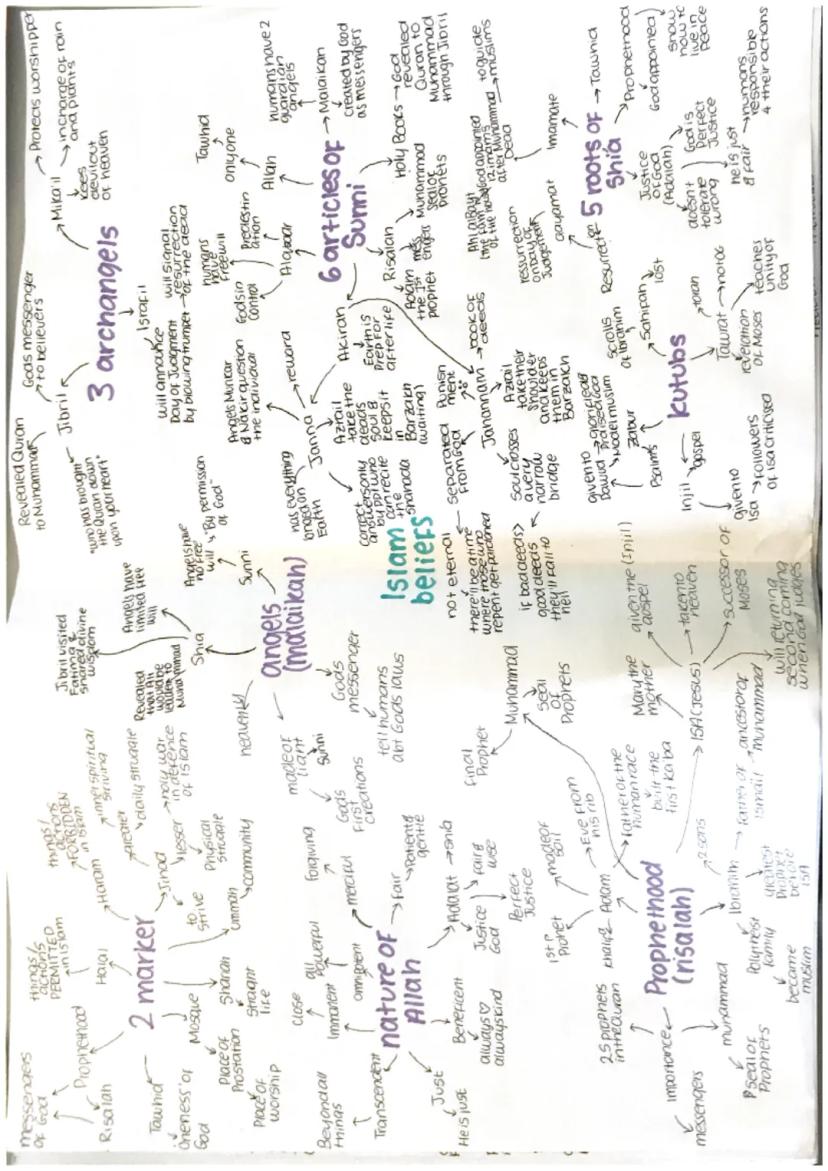 Islam
beliers
2 marker
Prophethood
messengers
of God
Risalah
Halal
things/
actions
PERMITTED
in islam
Haram
things/
actions
FORBIDDEN
in islam
Jihad
to
strive
greater
inner spiritual
striving
daily struggle
lesser
holy war
in defence
of islam
Physical
struggle
ummah
community
Shariah
straight
life
Mosque
Place of
Prostation
Place of
worship
Tawhid
Oneness of
God
angels
(malaikah)
Shia
Angels have
limited free
will
Jibril visited
Fatima &
shared divine
wisdom
Revealed
that Ali
would be
leader to
Muhammad
Sunni
Angels have
no free
will
"By permission
of God"
heavenly
made of
light
Sunni
Gods
First
creations
Gods
messenger
tell humans
abt Gods laws
3 archangels
Jibril
Revealed Quran
to Muhammad
Gods messenger
to believers
"who has brought
the Quran down
upon your heart"
Mika'il
Protects worshipper
incharge of rain
and plants
keeps
devil out
of heaven
Israfil
will announce
Day of Judgment
by blowing trumpet
will signal
resurrection
of the dead
nature of
Allah
Transcendent
Beyond all
things
Immanent
close
omnipotent
all
Powerful
merciful
Forgiving
Fair
Patient &
gentle
Adalat
shia
Justice
God
fair &
Perfect
Justice
Benericent
always
always kind
Just
He is just
6 articles of
Sunni
Allah
Tawhid
only one
Malaikah
humans have 2
guardian
angels
created by God
as messengers
Holy Books
God
revealed
Quran to
Muhammad
through Jibril
Risalah
messengers
Muhammad
seal of
prophets
Adam
the 1st
prophet
Al qadr
Predestin
ation
humans
have
freewill
God is in
control
Akirah
Earth is
Prep for
afterlife
Janna
reward
Angels Munkar
& Nakir question
the individual
Azrail
take the
deads
soul &
keeps it
in
Barzakh
(waiting)
has everything
longed on
Earth
correct
answers only
by ppl who
can recite
the
shahada
Jahannam
Punish
ment
book of
deeds
Azrail
take their
shoulder
and keeps
them in
Barzakh
separated
from God
not eternal
there'll be a time
where those who
repent get pardoned
soul crosses
a very
narrow
bridge
if bad deeds>
good deeds
they'll fall to
hell
5 roots of
Shia
Tawhid
Prophethood
God appointed
show
how to
live in
peace
Justice
of God
(Adalah)
God is
Perfect
Justice
doesn't
tolerate
wrong
he is just
& fair
humans
responsible
4 their actions
Imamate
God appointed
12 imams
after Muhammad
Dead
to guide
muslims
Resurrect
resurrection
on day of
Judgement
Kutubs
Sahifah
Scrolls
of Ibrahim
lost
Tawrat
torah
revelation
of Moses
teaches
unity of
God
Zabur
Psalms
given to
Dawud
Injil
gospel
given to
Isa
followers
of isa criticised
Prophethood
(risalah)
25 prophets
in the Quran
importance
messengers
muhammad
seal of
Prophets
Adam
khalifa
1st
Prophet
made of
soil
Eve from
his rib
Father of the
human race
built the
first kaba
Muhammad
Final
Prophet
seal
of
Prophets
ISA (Jesus)
Mary the
mother
given the (Injil)
gospel
taken to
heaven
successor of
Moses
will return
second coming
when God judges
Ibrahim
2 sons
father of
Ismail
ancestor of
muhammad
greatest
Prophet
before
isa
Polytheist
family
became
muslim